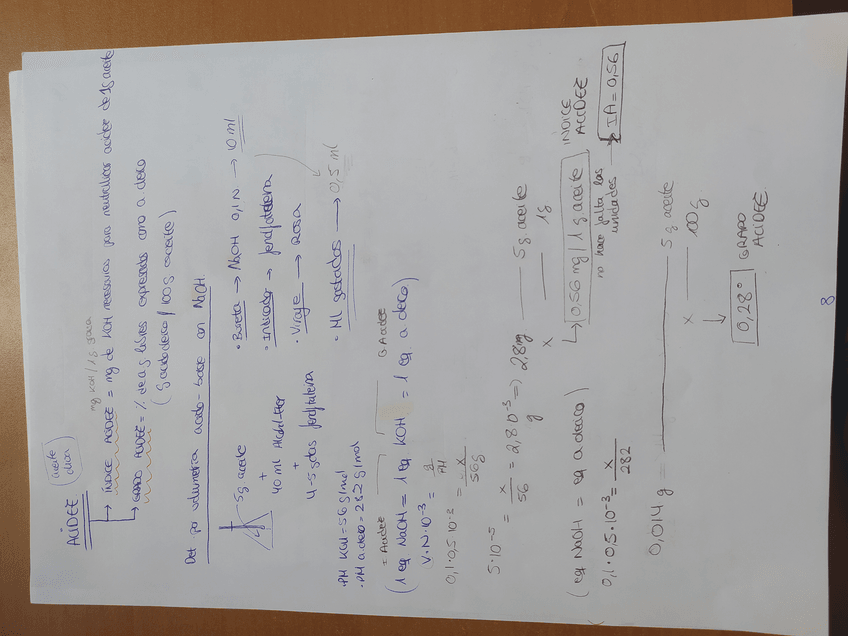 ACIDEZ (aceite oliva)
mg KOH / 1 g grasa
→ ÍNDICE ACIDEZ = mg de KOH necesarios para neutralizar acidez de 1g aceite
→ GRADO ACIDEZ = % de ag libres expresados como a. oleico
(g ácido oleico / 100 g aceite)
Det por volumetría ácido-base con NaOH
5g aceite
+
40 ml Alcohol-Éter
+
4-5 gotas fenolftaleina
• Bureta → NaOH 0,1 N → 10 ml
• Indicador → fenolftaleina
• Viraje → Rosa
• Ml gastados → 0,5 ml
• PM KOH = 56 g/mol
• PM a. oleico = 282 g/mol
= Acidez
G. Acidez
(1 eq NaOH = 1 eq KOH = 1 eq. a. oleico)
V · N · 10⁻³ = g / PM
0,1 · 0,5 · 10⁻³ = x / 56g
5 · 10⁻⁵ = x / 56 = 2,8 · 10⁻³ g ⇒ 2,8 mg — 5 g aceite
x — 1g
↳ 0,56 mg / 1 g aceite
ÍNDICE ACIDEZ
no hace falta las unidades → IA = 0,56
(eq NaOH = eq a. oleico)
0,1 · 0,5 · 10⁻³ = x / 282
0,014 g — 5 g aceite
x — 100 g
↓
0,28° GRADO ACIDEZ
8